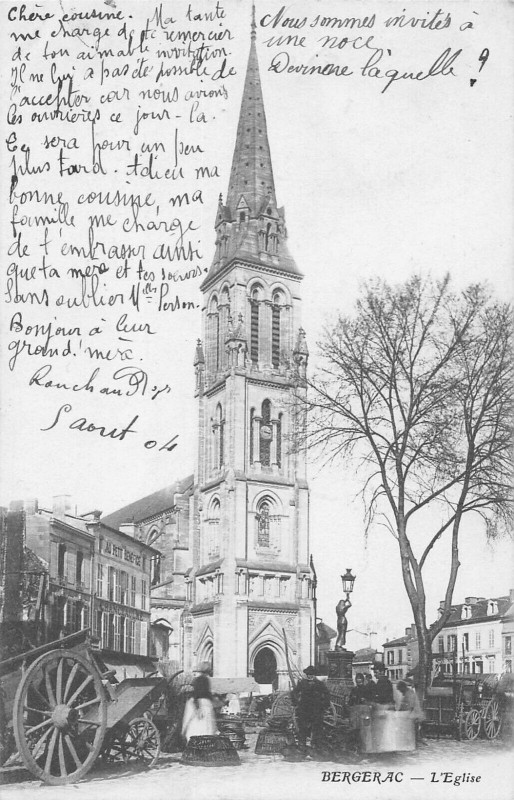 Chère cousine. Ma tante
me charge de te remercier
de ton aimable invitation.
Il ne lui a pas été possible de
l'accepter car nous avions
les ouvrières ce jour-là.
Ce sera pour un peu
plus tard. Adieu ma
bonne cousine, ma
famille me charge
de t'embrasser ainsi
que ta mère et tes soeurs.
Sans oublier Mlles Person.
Bonjour à leur
grand'mère.
5 août 04
Nous sommes invités à
une noce,
Devinez laquelle ?
AU PETIT BÉNÉFICE
BERGERAC — L'Eglise